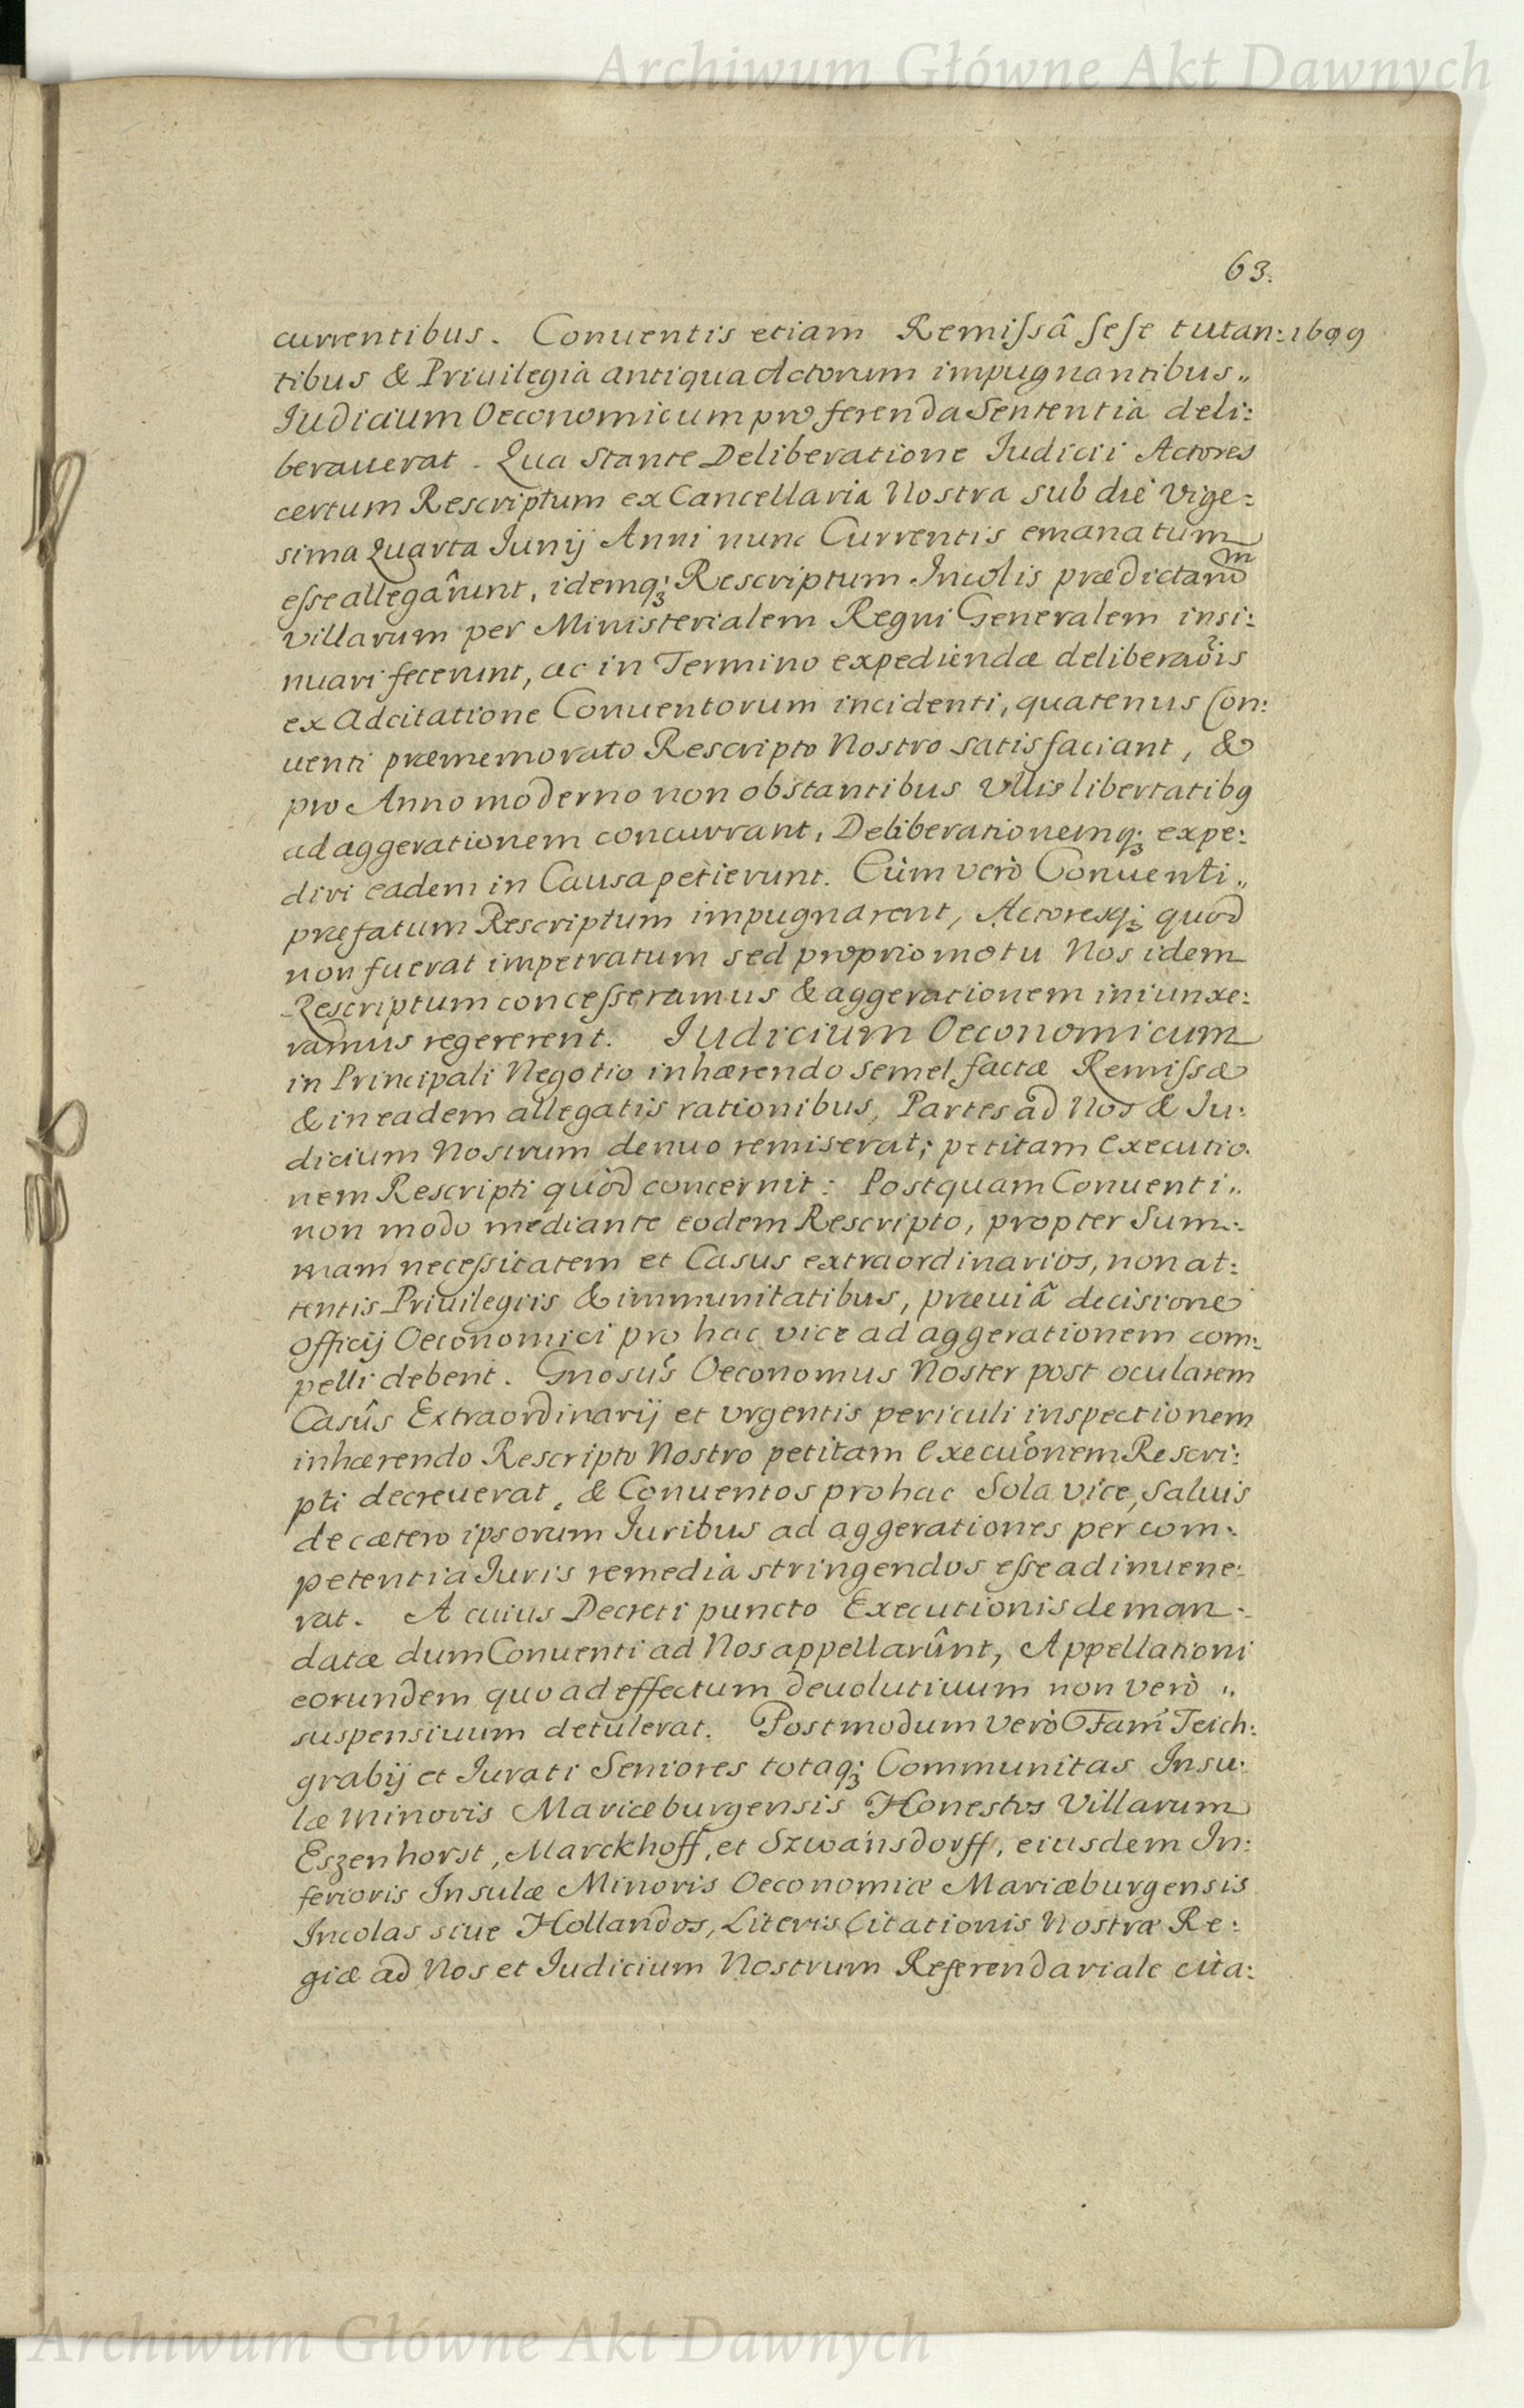 Archiwum Główne Akt Dawnych
63.
currentibus. Conuentis etiam Remissâ sese tutan: 1699
tibus & Priuilegia antiqua Actorum impugnantibus„
Iudicium Oeconomicum pro ferenda Sententia deli:
berauerat. Qua stante Deliberatione Iudicii Actores
certum Rescriptum ex Cancellaria Nostra sub die Vige:
sima Quarta Iunij Anni nunc Currentis emanatum
esse allegârunt, idemq; Rescriptum Incolis prædictarũ
villarum per Ministerialem Regni Generalem insi:
nuari fecerunt, ac in Termino expediendæ deliberaõis
ex Adcitatione Conuentorum incidenti, quatenus Con:
uenti præmemorato Rescripto Nostro satisfaciant, &
pro Anno moderno non obstantibus Vllis libertatibq
ad aggerationem concurrant, Deliberationemq; expe:
diri eadem in Causa petierunt. Cùm verò Conuenti„
præfatum Rescriptum impugnarent, Actoresq; quod
non fuerat impetratum sed proprio motu Nos idem
Rescriptum concesseramus & aggerationem iniunxe:
ramus regererent. Iudicium Oeconomicum
in Principali Negotio inhærendo semel factæ Remissæ
& in eadem allegatis rationibus, Partes ad Nos & Iu:
dicium Nostrum denuo remiserat; petitam Executio.
nem Rescripti quòd concernit: Postquam Conuenti„
non modo mediante eodem Rescripto, propter Sum:
mam necessitatem et Casus extraordinarios, non at:
tentis Priuilegiis & immunitatibus, præuiâ decisione
Officij Oeconomici pro hac vice ad aggerationem com:
pelli debent. Gnosus Oeconomus Noster post ocularem
Casûs Extraordinarij et vrgentis periculi inspectionem
inhærendo Rescripto Nostro petitam Execuõnem Rescri:
pti decreuerat, & Conuentos pro hac Sola vice, saluis
de cætero ipsorum Iuribus ad aggerationes per com:
petentia Iuris remedia stringendos esse adinuene:
rat. A cuius Decreti puncto Executionis deman:
datæ dum Conuenti ad Nos appellarûnt, Appellationi
eorundem quo ad effectum deuolutiuum non verò „
suspensiuum detulerat. Postmodum verò Fam̃ Teich:
grabij et Iurati Seniores totaq; Communitas Insu:
læ minoris Mariæburgensis Honestos Villarum
Eszenhorst, Marckhoff, et Szwansdorff, eiusdem In:
ferioris Insulæ Minoris Oeconomiæ Mariæburgensis
Incolas siue Hollandos, Literis Citationis Nostræ Re:
giæ ad Nos et Iudicium Nostrum Referendariale cita:
Archiwum Główne Akt Dawnych